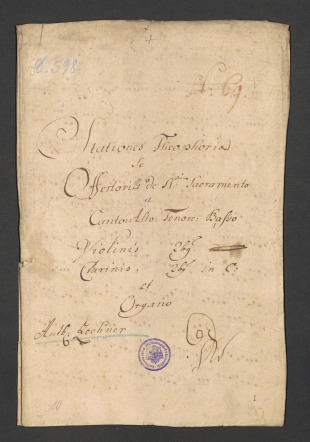 C. 398.
N. 69.
Stationes Theophoricæ
Se
Offertorium de SS. Sacramento
a
Canto: Alto: Tenore: Basso
Violinis 2bg
Clarinis. 2bg in C:
et
Organo
Auth. Lechner
10
1